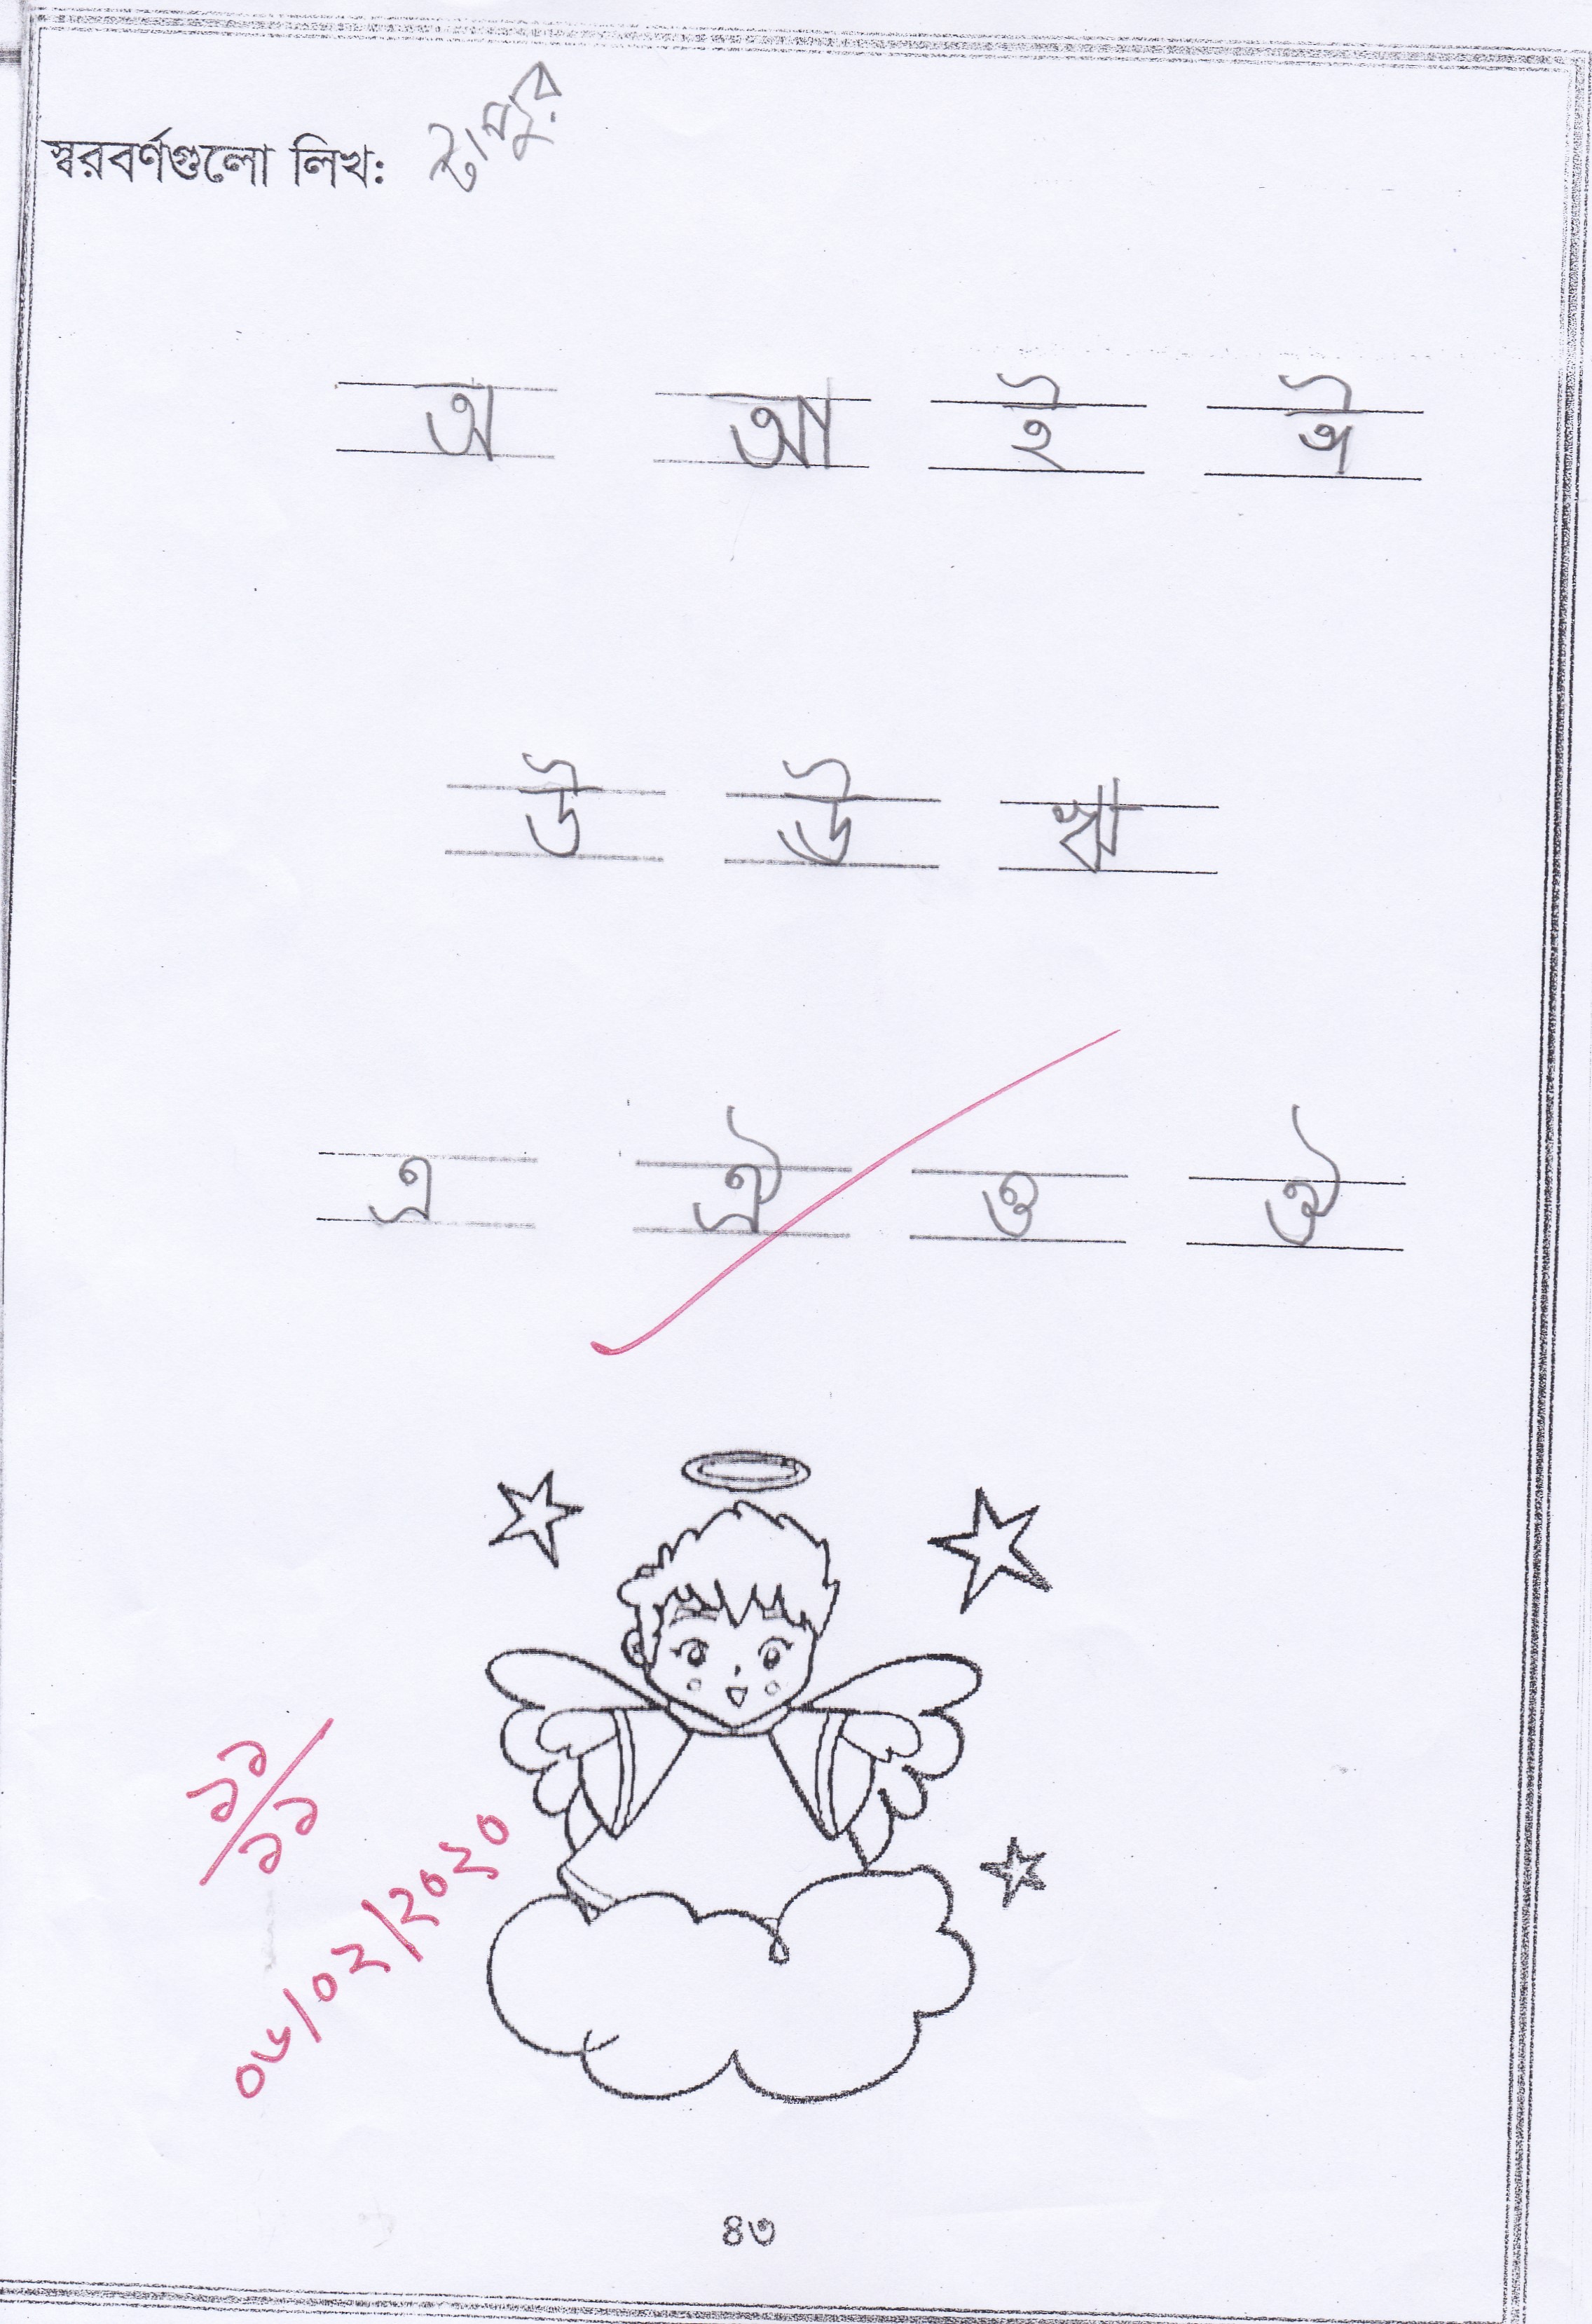 স্বরবর্ণগুলো লিখ: টাপুর
অ আ ই ঈ
উ ঊ ঋ
এ ঐ ও ঔ
১১/১১
০৬/০২/২০২০
৪৩